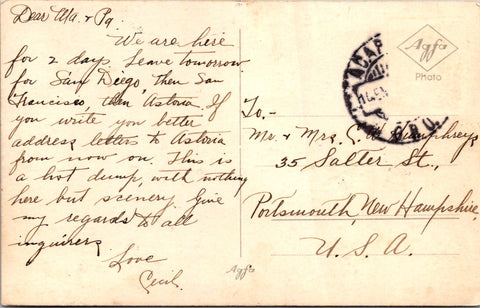 Dear Ma. + Pa.
We are here
for 2 days. Leave tomorrow
for San Diego, then San
Francisco, then Astoria. If
you write you better
address letters to Astoria
from now on. This is
a hot dump, with nothing
here but scenery. Give
my regards to all
inquirers
Love
Cecil.
Agfa
Photo
ACAP
To.-
Mr. + Mrs. Humphreys
35 Salter St.,
Portsmouth, New Hampshire,
U.S.A.
Agfa